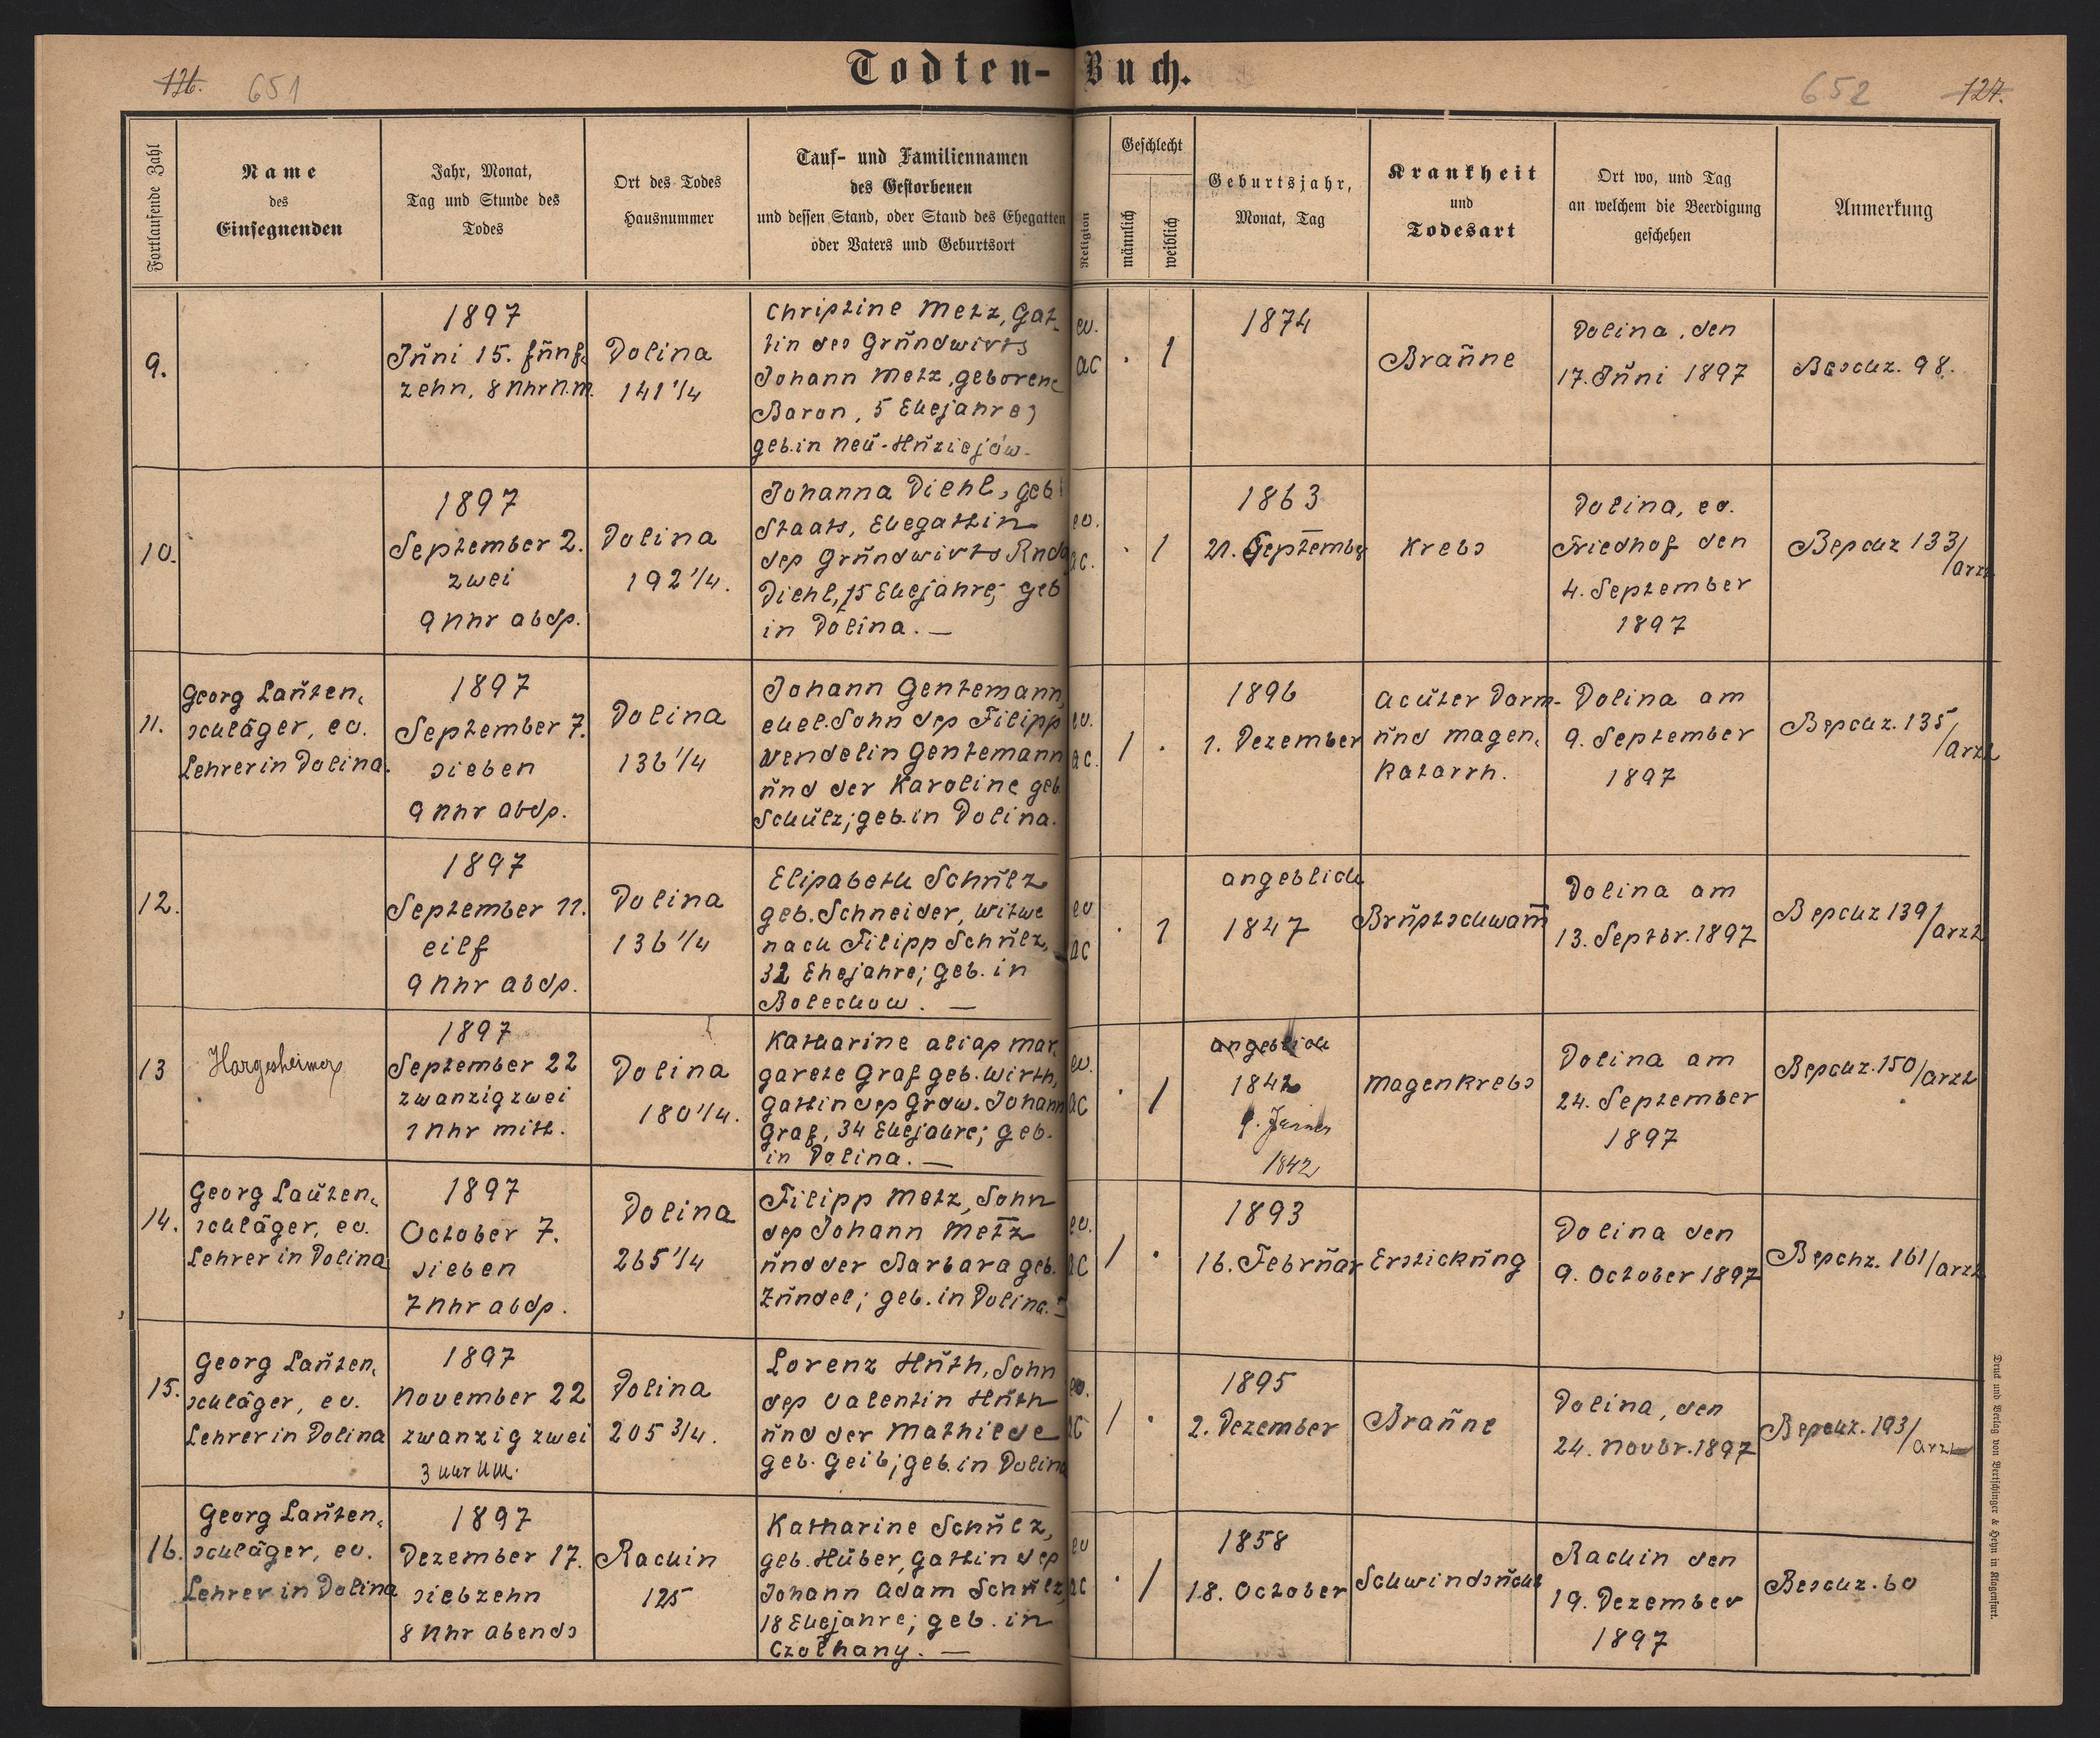 Todten-Buch.
126. 651
652 127.
Fortlaufende Zahl
Name
des
Einsegnenden
Jahr, Monat,
Tag und Stunde des
Todes
Ort des Todes
Hausnummer
Tauf- und Familiennamen
des Gestorbenen
und dessen Stand, oder Stand des Ehegatten
oder Vaters und Geburtsort
Religion
Geschlecht
männlich
weiblich
Geburtsjahr,
Monat, Tag
Krankheit
und
Todesart
Ort wo, und Tag
an welchem die Beerdigung
geschehen
Anmerkung
9.
1897
Juni 15. fünf-
zehn, 8 Uhr N.M.
Dolina
141 1/4
Christine Metz, Gat-
tin des Grundwirts
Johann Metz, geborene
Baron, 5 Ehejahre;
geb. in Neu-Huziejów.
ev.
ac
. 1
1874
Braüne
Dolina, den
17. Juni 1897
Beschz. 98.
10.
1897
September 2.
zwei
9 Uhr abds.
Dolina
192 1/4.
Johanna Diehl, geb.
Staats, Ehegattin
des Grundwirts
Diehl, 15 Ehejahre; geb
in Dolina. —
ev.
ac.
. 1
1863
21. September
Krebs
Dolina, ev.
Friedhof den
4. September
1897
Beschz 133/arzt
11.
Georg Lauten-
schläger, ev.
Lehrer in Dolina.
1897
September 7.
sieben
9 Uhr abds.
Dolina
136 1/4
Johann Gentemann,
ehel. Sohn des Filipp
Wendelin Gentemann
und der Karoline geb.
Schulz; geb. in Dolina.
ev.
ac.
1 .
1896
1. Dezember
Acuter Darm-
und Magen-
Katarrh.
Dolina am
9. September
1897
Beschz. 135/arzt
12.
1897
September 11.
eilf
9 Uhr abds.
Dolina
136 1/4
Elisabeth Schulz
geb. Schneider, Witwe
nach Filipp Schulz,
32 Ehejahre; geb. in
Bolechow. —
ev
ac
. 1
angeblich
1847
Brustschwam̄
Dolina am
13. Septbr. 1897
Beschz 139/arzt
13
Hargesheimer
1897
September 22
zwanzigzwei
1 Uhr mitt.
Dolina
180 1/4.
Katharine alias Mar-
garete Graf geb. Wirth,
Gattin des Grdw. Johann
Graf, 34 Ehejahre; geb.
in Dolina. —
ev.
ac
. 1
angeblich
1842
9. Jänner
1842
Magenkrebs
Dolina am
24. September
1897
Beschz. 150/arzt
14.
Georg Lauten-
schläger, ev.
Lehrer in Dolina
1897
October 7.
sieben
7 Uhr abds.
Dolina
265 1/4
Filipp Metz, Sohn
des Johann Metz
und der Barbara geb.
Zündel; geb. in Dolina. —
ev.
ac
1 .
1893
16. Februar
Erstickung
Dolina den
9. October 1897
Beschz. 161/arzt
15.
Georg Lauten-
schläger, ev.
Lehrer in Dolina
1897
November 22
zwanzig zwei
3 Uhr NM.
Dolina
205 3/4.
Lorenz Huth, Sohn
des Valentin Huth
und der Mathilde
geb. Geib; geb. in Dolina
ev.
ac
1 .
1895
2. Dezember
Braüne
Dolina, den
24. Novbr. 1897
Beschz. 193/arzt
16.
Georg Lauten-
schläger, ev.
Lehrer in Dolina
1897
Dezember 17.
siebzehn
8 Uhr abends
Rachin
125
Katharine Schulz,
geb. Huber, Gattin des
Johann Adam Schulz,
18 Ehejahre; geb. in
Czolhany. —
ev
ac
. 1
1858
18. October
Schwindsucht
Rachin den
19. Dezember
1897
Beschz. 60
Druck und Verlag von Bertschinger & Heyn in Klagenfurt.